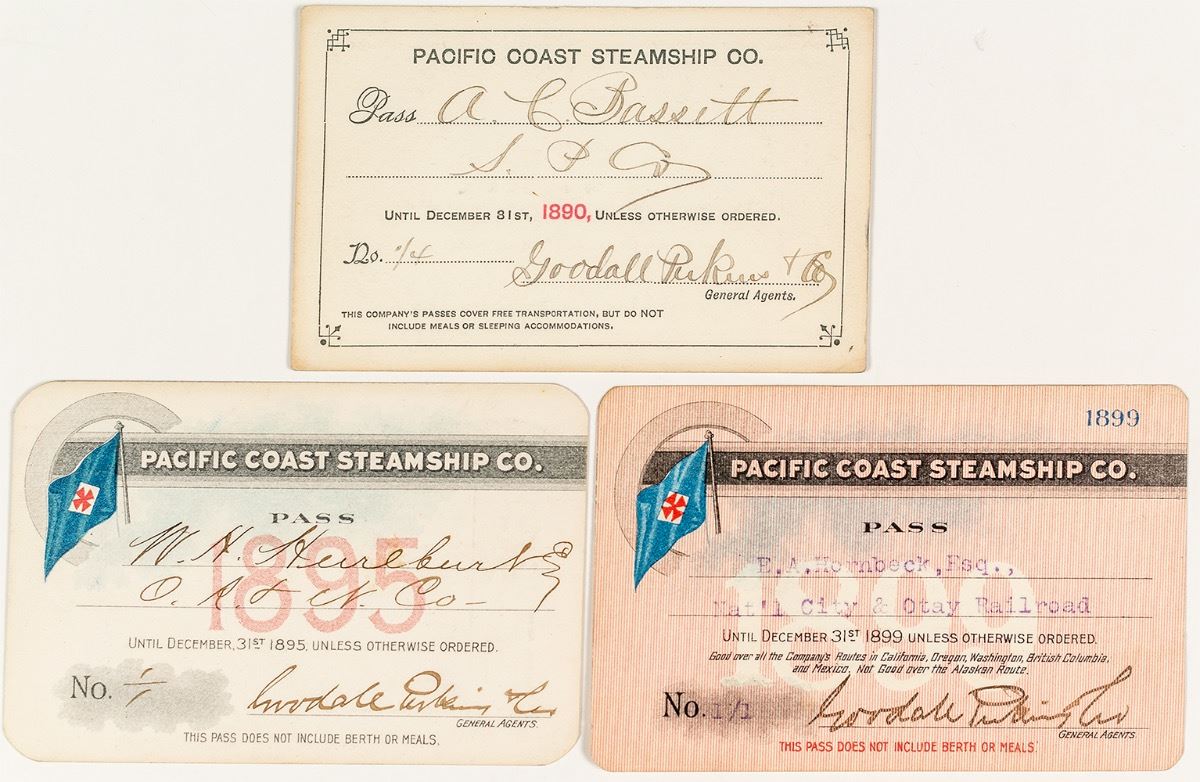 PACIFIC COAST STEAMSHIP CO.
Pass A. C. Bassett
S. P. Co
UNTIL DECEMBER 31ST, 1890, UNLESS OTHERWISE ORDERED.
No. 14 Goodall Perkins & Co
General Agents.
THIS COMPANY'S PASSES COVER FREE TRANSPORTATION, BUT DO NOT
INCLUDE MEALS OR SLEEPING ACCOMMODATIONS.
PACIFIC COAST STEAMSHIP CO.
PASS
1895
W. H. Hurlburt Esq
O. R & N. Co -
UNTIL DECEMBER, 31ST 1895, UNLESS OTHERWISE ORDERED.
No. Goodall Perkins & Co
GENERAL AGENTS.
THIS PASS DOES NOT INCLUDE BERTH OR MEALS.
1899
PACIFIC COAST STEAMSHIP CO.
PASS
1899
E.A.Hornbeck,Esq.,
Nat'l City & Otay Railroad
UNTIL DECEMBER 31ST 1899 UNLESS OTHERWISE ORDERED.
Good over all the Company's Routes in California, Oregon, Washington, British Columbia,
and Mexico, Not Good over the Alaskan Route.
No. Goodall Perkins & Co
GENERAL AGENTS
THIS PASS DOES NOT INCLUDE BERTH OR MEALS.